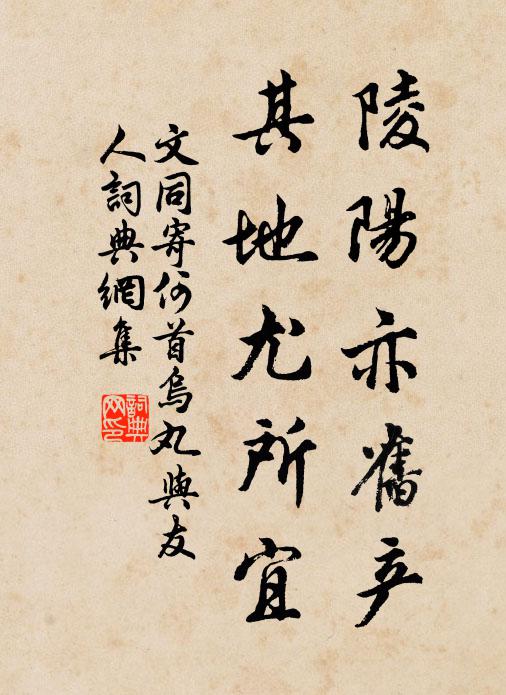 陵陽亦舊产
其地尤所宜
文同寄何首烏丸與友
人詞典網集
詞典
网印